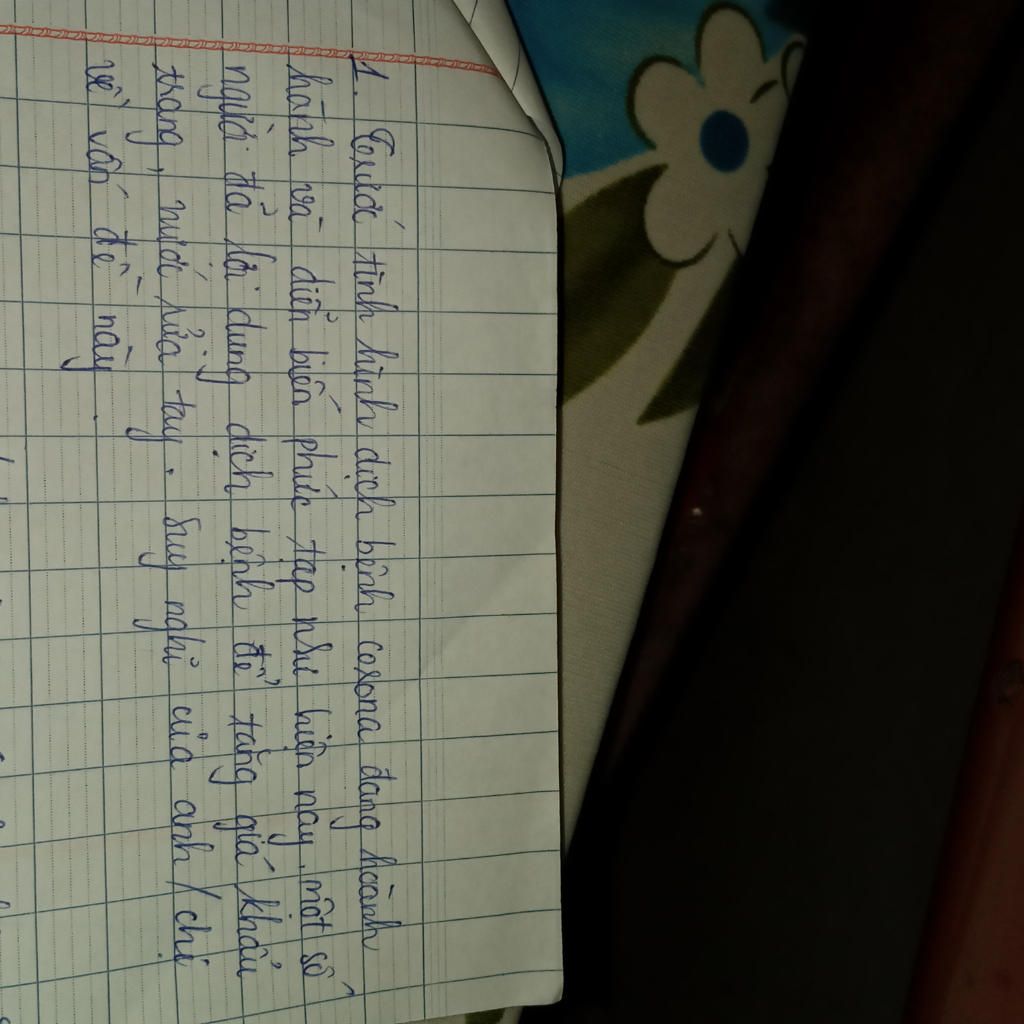 1. Trước tình hình dịch bệnh corona đang hoành
hành và diễn biến phức tạp như hiện nay. một số
người đã lợi dụng dịch bệnh để tăng giá khẩu
trang, nước rửa tay. Suy nghĩ của anh / chị
về vấn đề này.